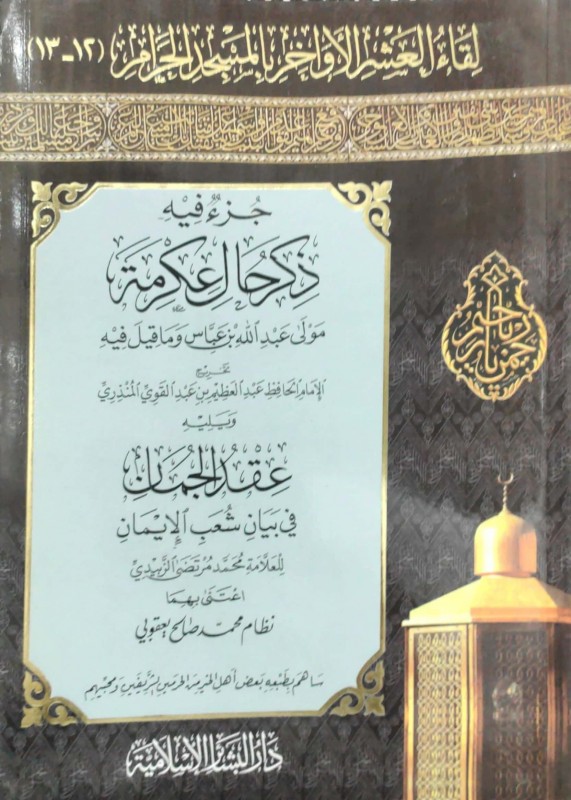 لِقَاءُ العَشْرِ الأَوَاخِرِ بِالمَسْجِدِ الحَرَامِ (١٢-١٣)
جُزءٌ فِيْهِ
ذِكْرُ حَالِ عِكْرِمَةَ
مَوْلَى عَبْدِ اللهِ بْنِ عَبَّاسٍ وَمَا قِيلَ فِيْهِ
تخريج
الإِمَامِ الحَافِظِ عَبْدِ العَظِيمِ بْنِ عَبْدِ القَوِيِّ المُنْذِرِيِّ
وَيَلِيْهِ
عِقْدُ الجُمَانِ
فِي بَيَانِ شُعَبِ الإِيْمَانِ
لِلعَلَّامَةِ مُحَمَّد مُرْتَضَى الزَّبِيْدِيِّ
اعْتَنَى بِهِمَا
نظام محمد صالح يعقوبي
سَاهَمَ بِطَبْعِهِ بَعْضُ أَهْلِ الخَيْرِ مِنَ الحَرَمَيْنِ الشَّرِيْفَيْنِ وَمُحِبِّيْهِم
دَارُ البَشَائِرِ الإِسْلَامِيَّةِ